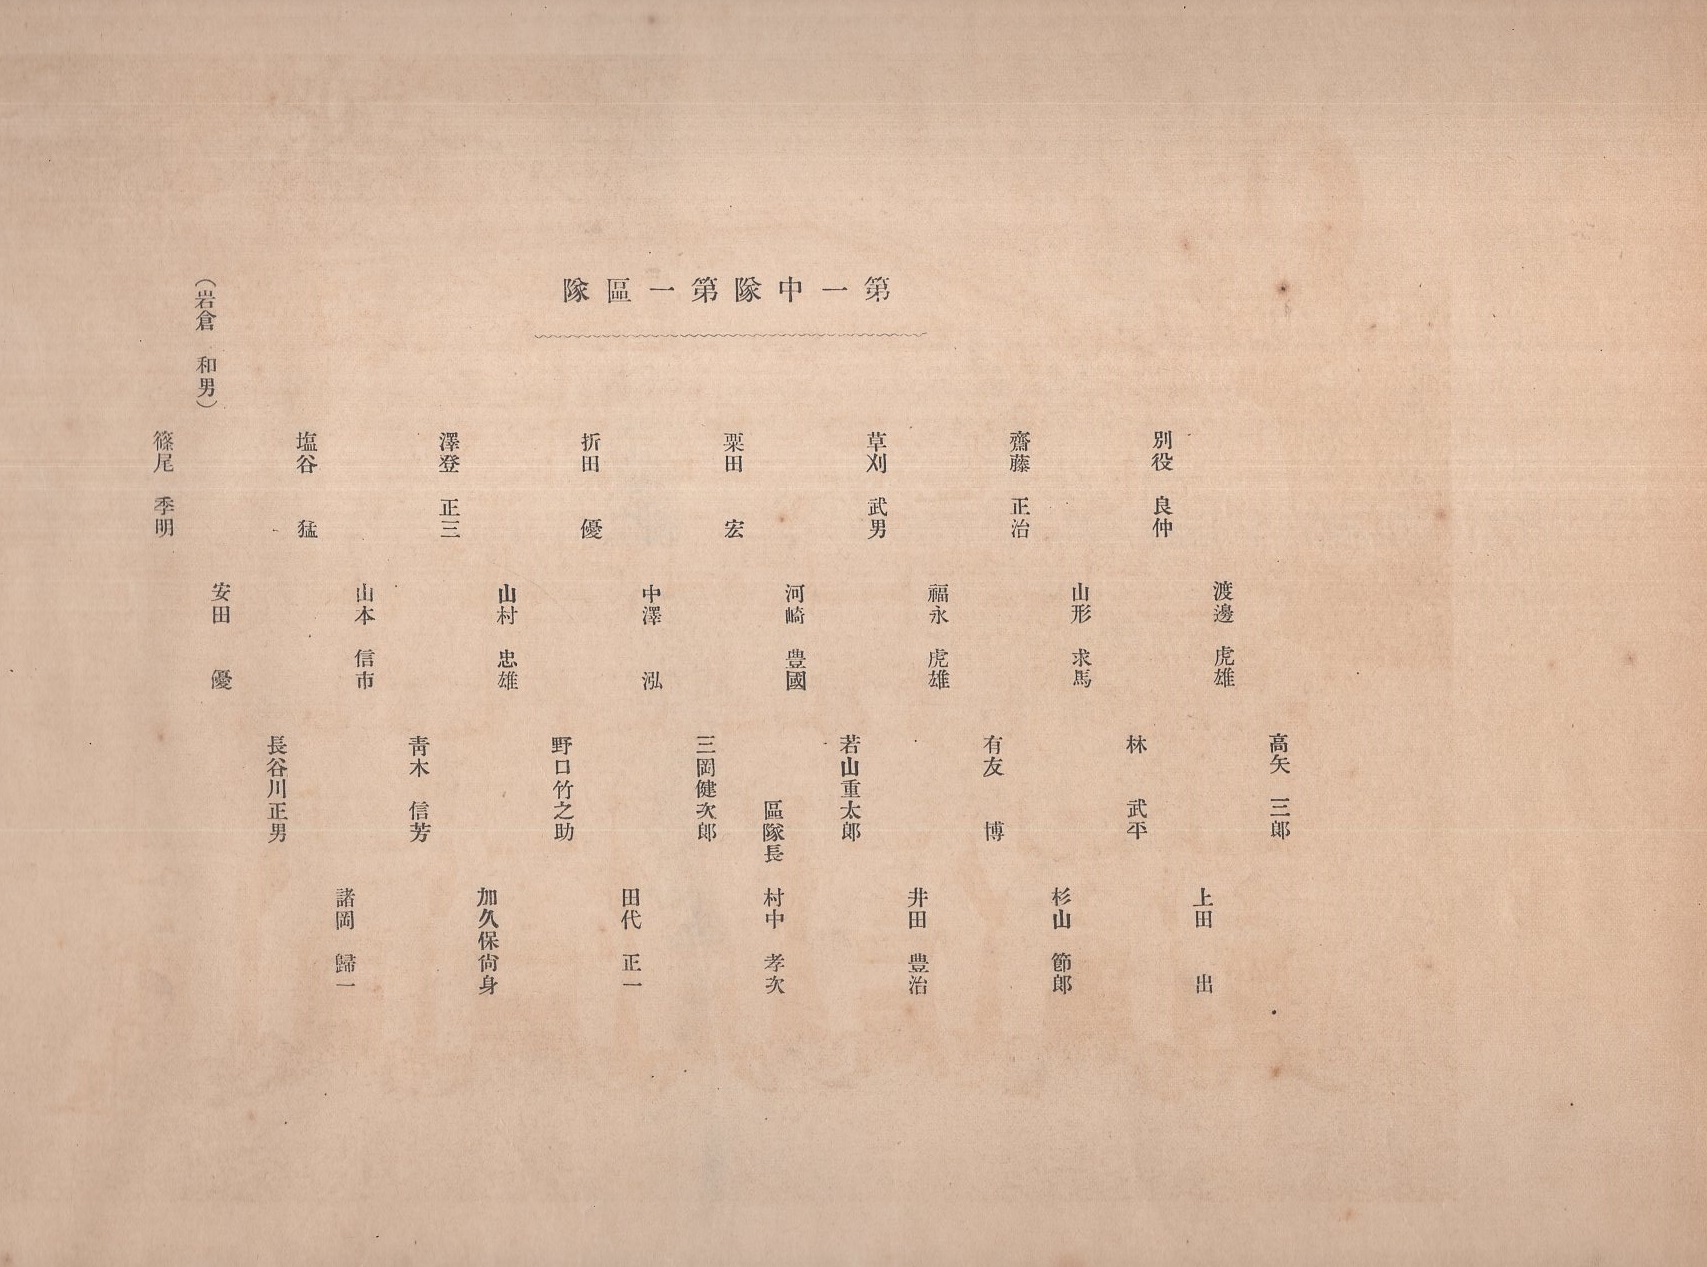 第一中隊第一區隊
別役 良仲
齋藤 正治
草刈 武男
栗田 宏
折田 優
澤登 正三
塩谷 猛
(岩倉 和男)
篠尾 季明
渡邊 虎雄
山形 求馬
福永 虎雄
河崎 豊國
中澤 泓
山村 忠雄
山本 信市
安田 優
高矢 三郎
林 武平
有友 博
若山重太郎
三岡健次郎
野口竹之助
靑木 信芳
長谷川正男
上田 出
杉山 節郎
井田 豊治
區隊長 村中 孝次
田代 正一
加久保尙身
諸岡 歸一